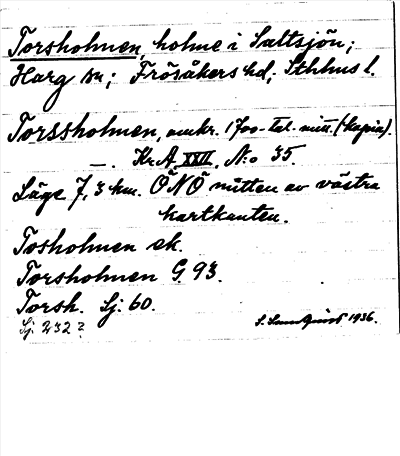 Torsholmen, holme i Saltsjön;
Harg sn; Frösåkers hd; Sthlms l.
Torssholmen, omkr. 1700-tal. mitt. (kopia).
—. Kr.A. XXII, N:o 35.
Läge 7,3 km. ÖNÖ mitten av västra
kartkanten.
Tosholmen ek.
Torsholmen G. 93.
Torsh. Sj: 60.
Sj: 232?
S. Sundquist 1936.